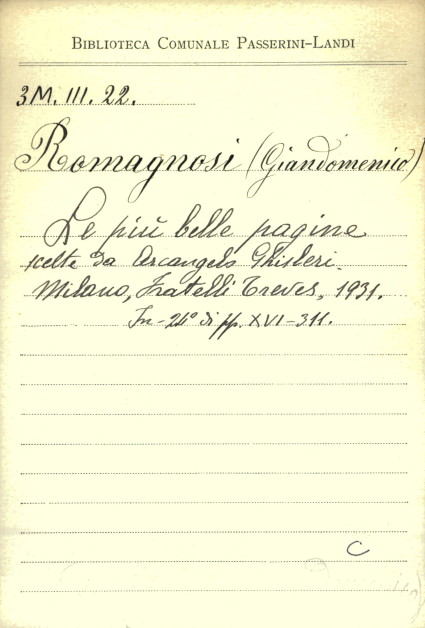 BIBLIOTECA COMUNALE PASSERINI-LANDI
3M. III. 22.
Romagnosi (Giandomenico)
Le più belle pagine
scelte da Arcangelo Ghisleri.
Milano, Fratelli Treves, 1931.
In-24° di pp. XVI-311.
C